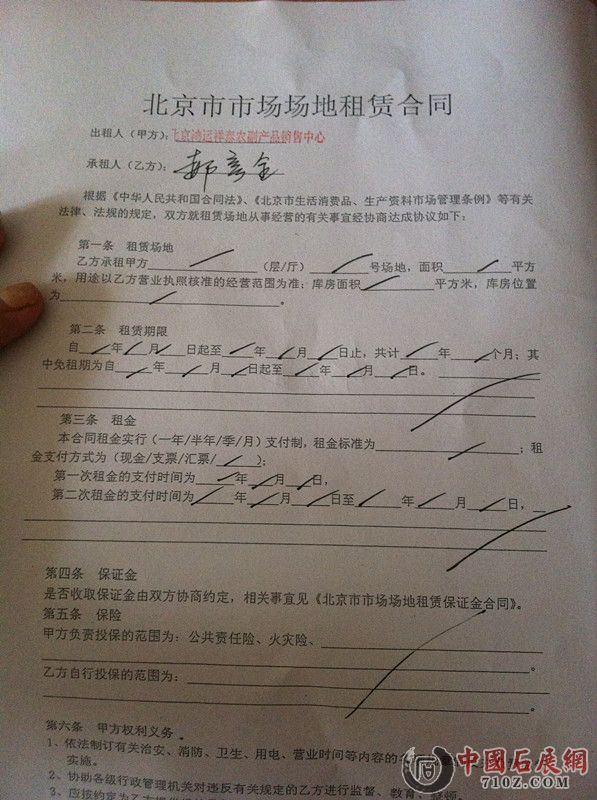 北京市市场场地租赁合同
出租人（甲方）：北京鸿运祥泰农副产品销售中心
承租人（乙方）：
根据《中华人民共和国合同法》、《北京市生活消费品、生产资料市场管理条例》等有关
法律、法规的规定，双方就租赁场地从事经营的有关事宜经协商达成协议如下：
第一条 租赁场地
乙方承租甲方 （层/厅） 号场地，面积 平方
米，用途以乙方营业执照核准的经营范围为准；库房面积 平方米，库房位置
为 。
第二条 租赁期限
自 年 月 日起至 年 月 日止，共计 年 个月；其
中免租期为自 年 月 日起至 年 月 日。
第三条 租金
本合同租金实行（一年/半年/季/月）支付制，租金标准为 ；租
金支付方式为（现金/支票/汇票/ ）；
第一次租金的支付时间为 年 月 日，
第二次租金的支付时间为 年 月 日至 年 月 日，
第四条 保证金
是否收取保证金由双方协商约定，相关事宜见《北京市市场场地租赁保证金合同》。
第五条 保险
甲方负责投保的范围为：公共责任险、火灾险、 。
乙方自行投保的范围为： 。
第六条 甲方权利义务
1、依法制订有关治安、消防、卫生、用电、营业时间等内容的
实施。
2、协助各级行政管理机关对违反有关规定的乙方进行监督、教育、
3、应按约定为乙方提供
中國石展網
710Z.COM